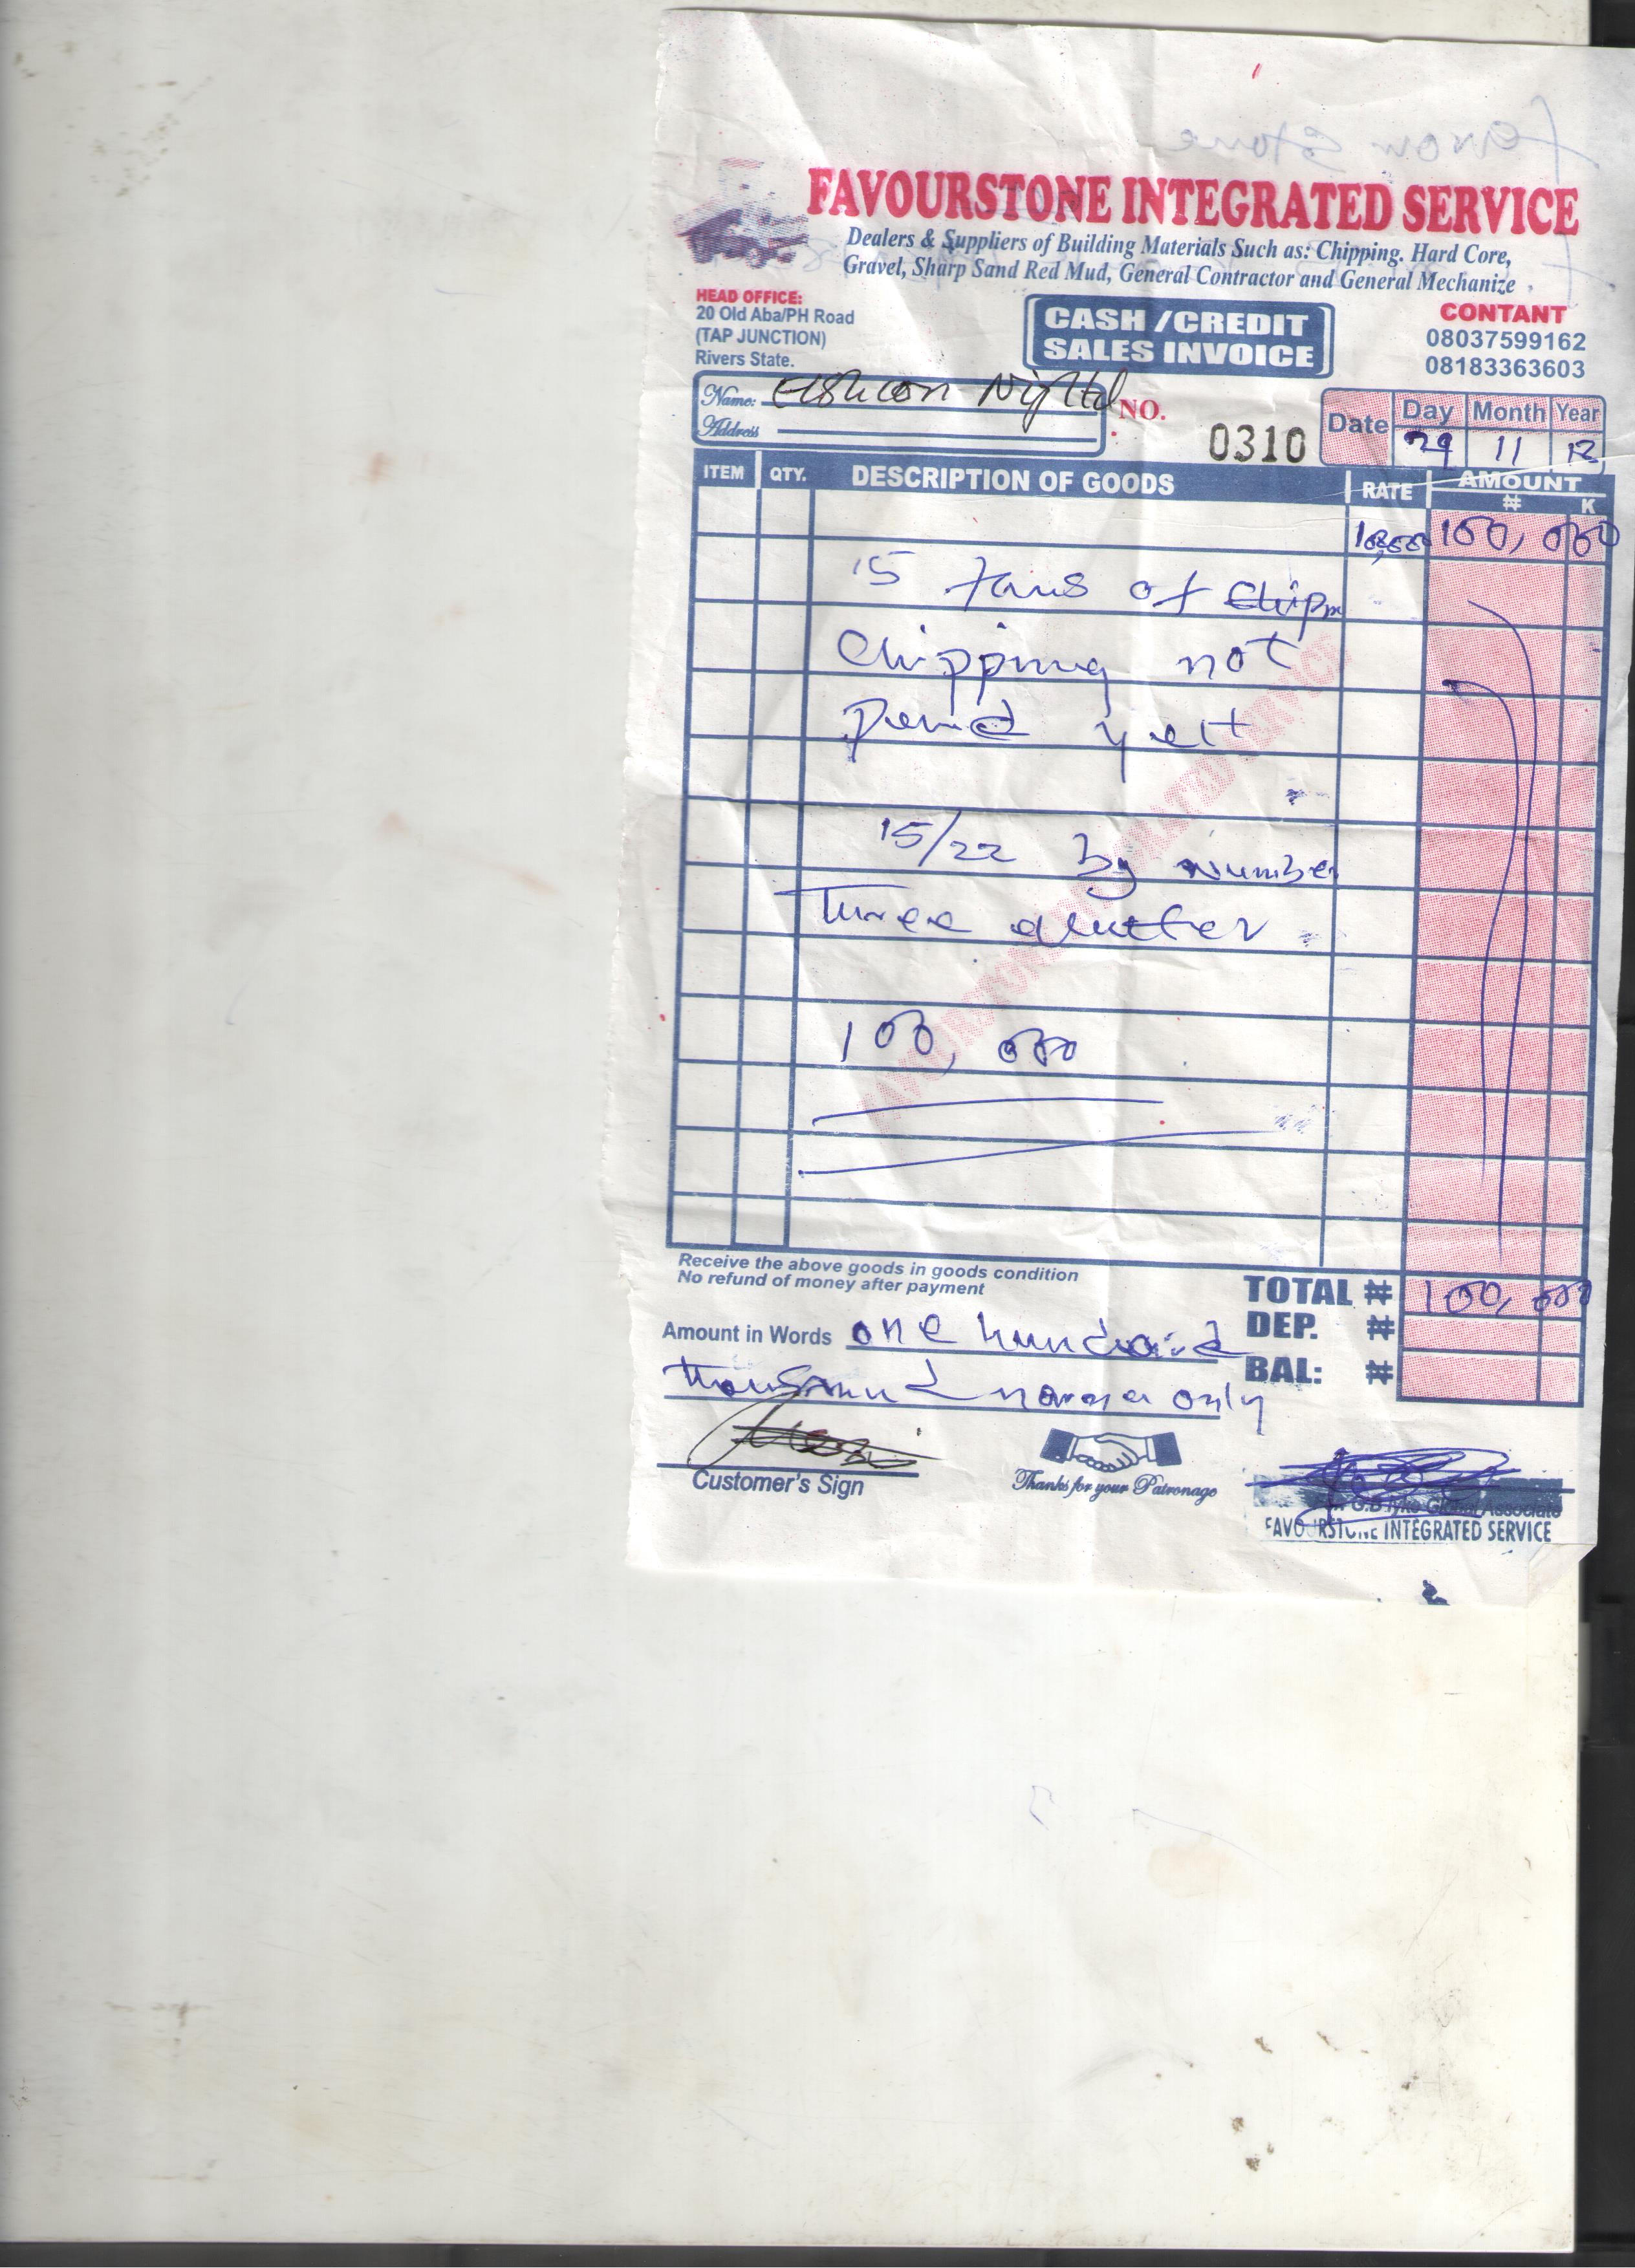 FAVOURSTONE INTEGRATED SERVICE
Dealers & Suppliers of Building Materials Such as: Chipping. Hard Core,
Gravel, Sharp Sand Red Mud, General Contractor and General Mechanize
HEAD OFFICE:
20 Old Aba/PH Road
(TAP JUNCTION)
Rivers State.
CASH /CREDIT
SALES INVOICE
CONTANT
08037599162
08183363603
Name: Nig Ltd
Address
NO. 0310
Date Day Month Year
29 11 12
ITEM QTY. DESCRIPTION OF GOODS RATE AMOUNT
₦ K
100,000
15 of Chipn
Chipping not
yett
15/22 by number
Three
100,000
FAVOURSTONE INTEGRATED SERVICE
Receive the above goods in goods condition
No refund of money after payment
TOTAL ₦ 100,000
DEP. ₦
BAL: ₦
Amount in Words one
only
Customer's Sign
Thanks for your Patronage
Global Associate
FAVOURSTONE INTEGRATED SERVICE